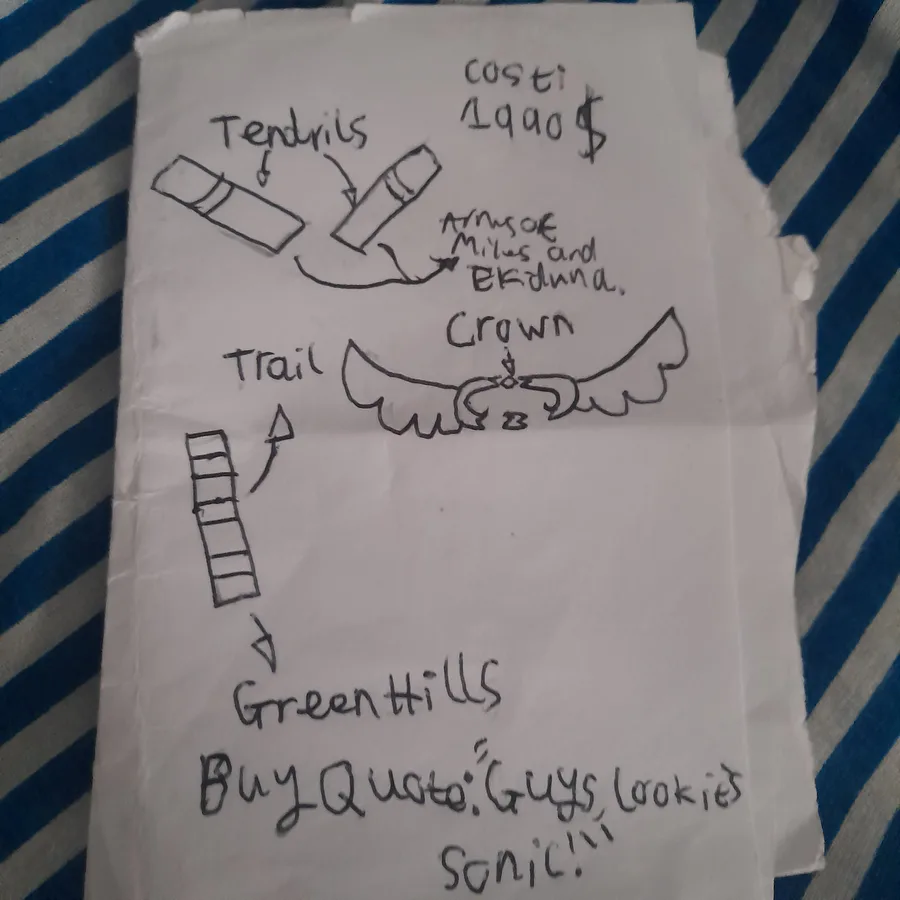 costi
1990$
Tendrils
Arms of
Miles and
Ekiduna.
Crown
Trail
Green Hills
Buy Quote: "Guys, lookies
sonic!"